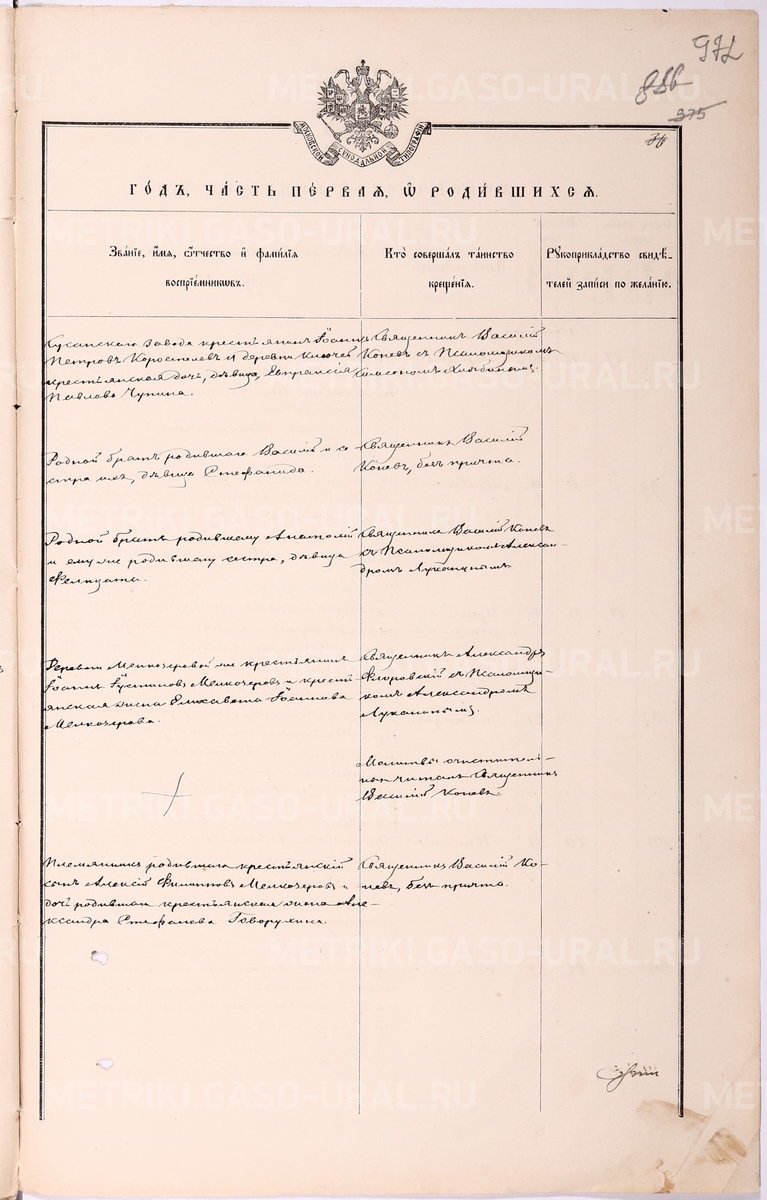 972
886
375
36
МОСКОВСКОЙ СѴНОДАЛЬНОЙ ТИПОГРАФІИ
ГО́ДЪ, ЧА́СТЬ ПЕ́РВАЯ, Ѿ РОДИ́ВШИХСЯ.
Зва́нїе, и҆́мя, ѻ҆́тчество и҆ фами́лїя
воспрїе́мникѡвъ.
Кто̀ соверша́лъ та́инство
креще́нїя.
Рꙋкоприкла́дство свидѣ́-
телей за́писи по жела́нїю.
завода крестьянинъ Іоаннъ
Петровъ Коростелевъ и деревни Ключей
крестьянская дочь, дѣвица, Евпраксія
Павлова Чупина.
Священникъ Василій
Коневъ съ Псаломщикомъ
Родной братъ родившаго Василій и се-
стра ихъ, дѣвица Стефанида.
Священникъ Василій
Коневъ, безъ причта.
Родной братъ родившему Анатолій
и ему же родившему сестра, дѣвица
Фелицата.
Священникъ Василій Коневъ
съ Псаломщикомъ Алексан-
дромъ Луканинымъ.
Деревни Мелкозеровой же крестьянинъ
Іоаннъ Іустиновъ Мелкозеровъ и кресть-
янская жена Елисавета Іоаннова
Мелкозерова.
Священникъ Александръ
Флоровскій съ Псаломщи-
комъ Александромъ
Луканинымъ.
Молитвы очиститель-
ныя читалъ Священникъ
Василій Коневъ.
Племянникъ родившаго крестьянскій
сынъ Алексій Филипповъ Мелкозеровъ и
дочь родившая крестьянская жена Але-
ксандра Стефанова Говорухина.
Священникъ Василій Ко-
невъ, безъ причта.
METRIKI.GASO-URAL.RU